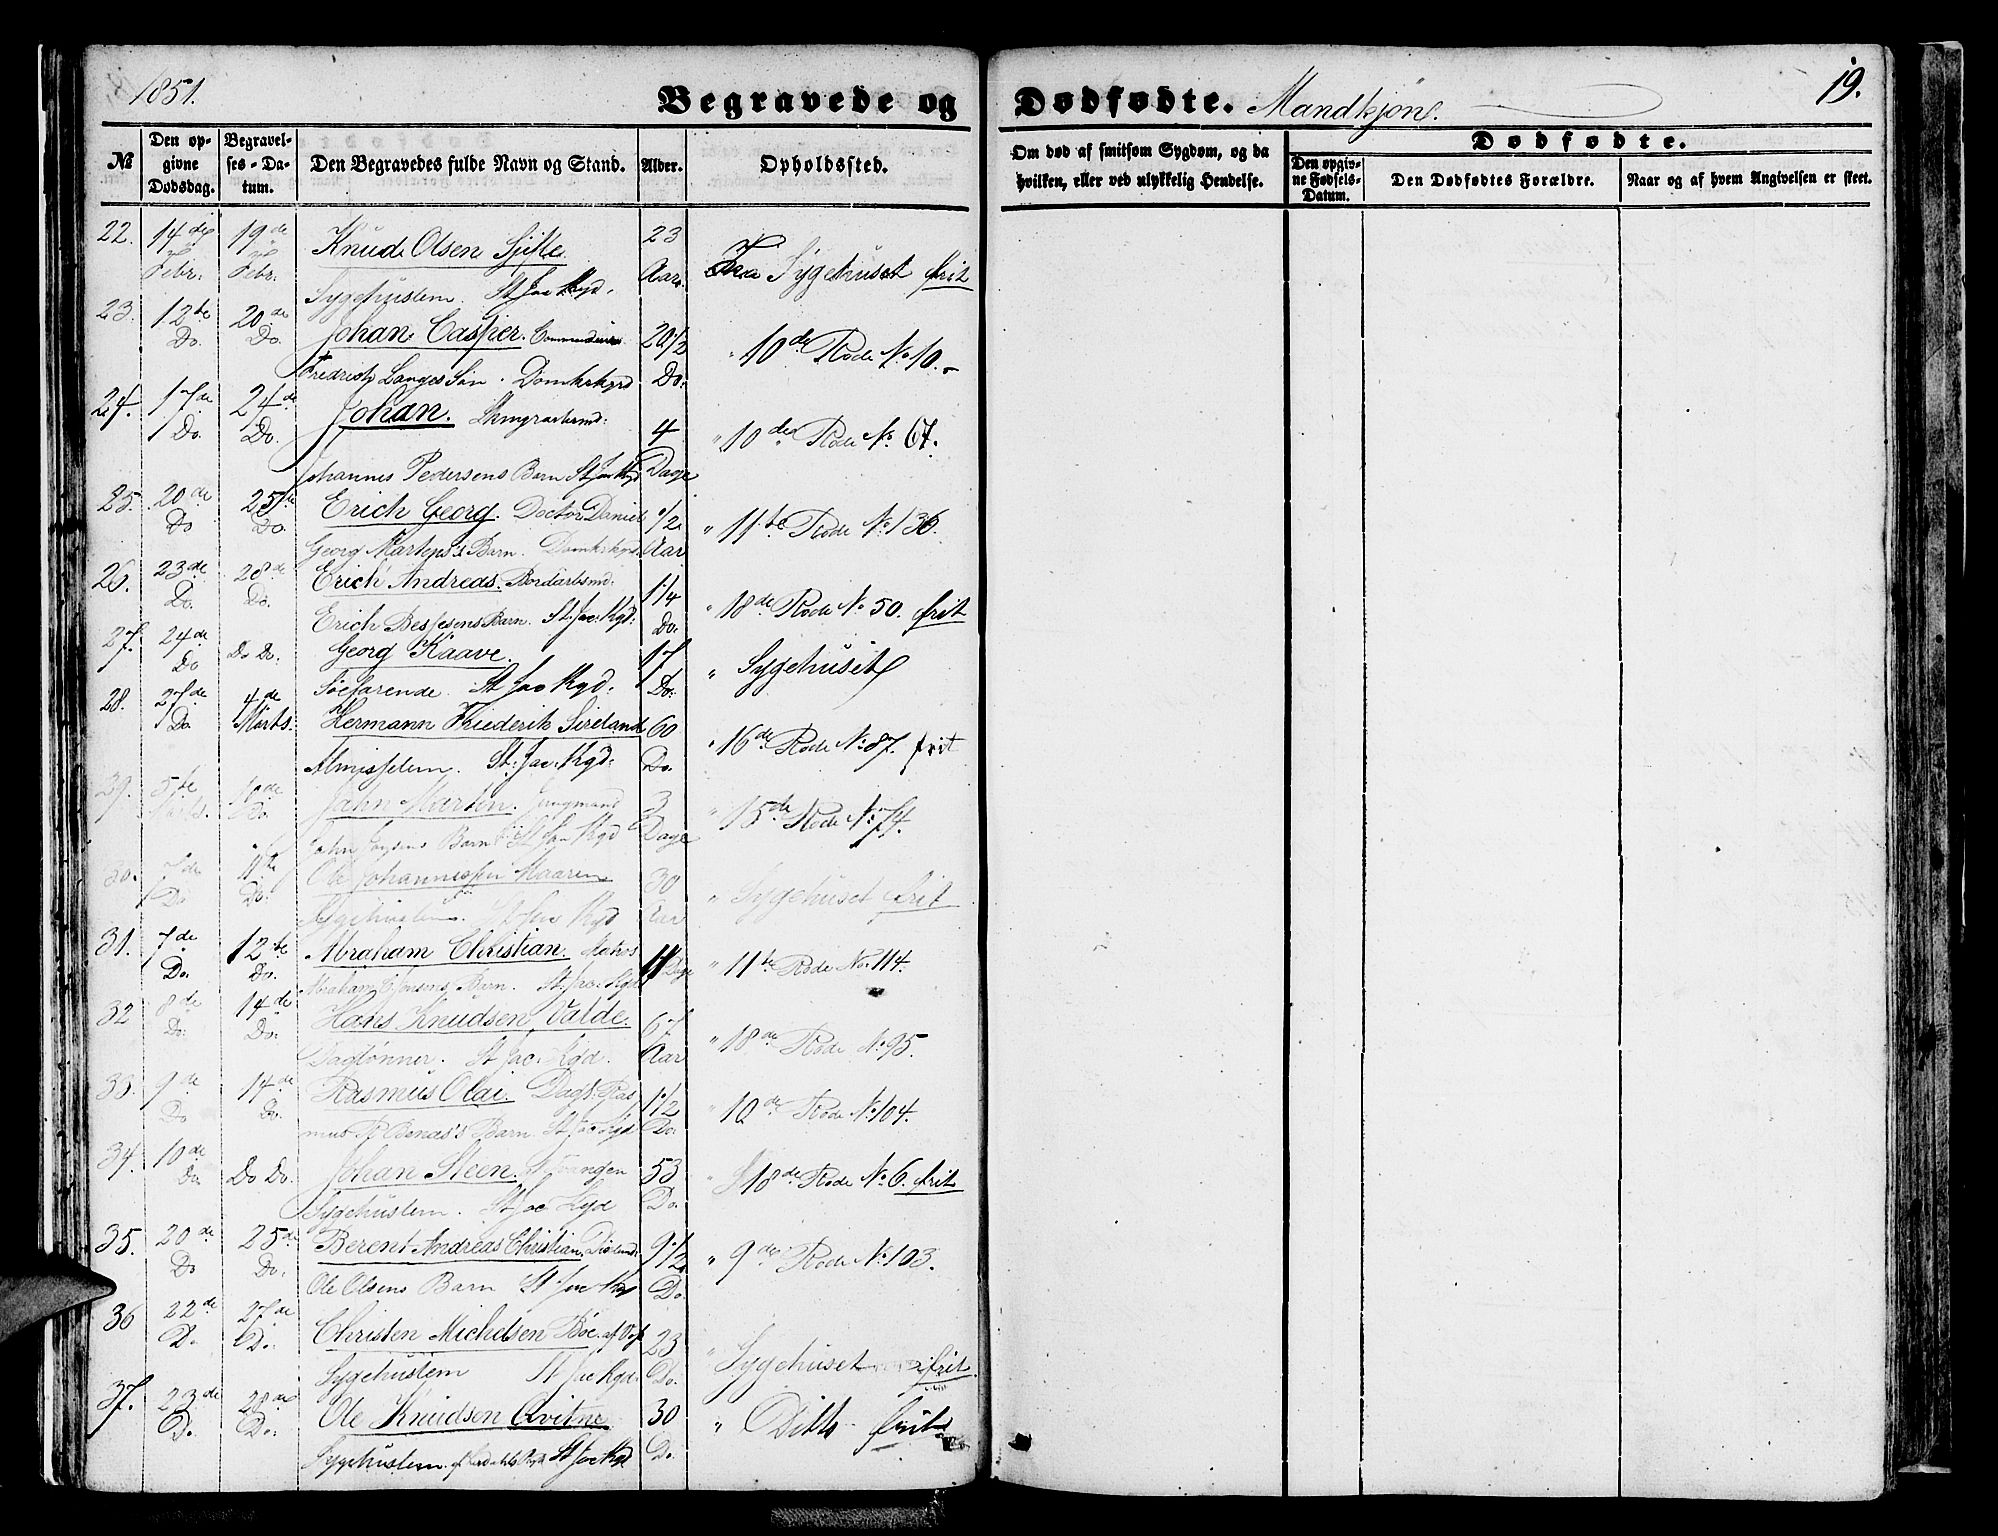 1851.
Begravede og
Dødfødte. Mandkjøn.
19.
No
Den opgivne Dødsdag.
Begravelses-Datum.
Den Begravedes fulde Navn og Stand.
Alder.
Opholdssted.
Om død af smitsom Sygdom, og da hvilken, eller ved ulykkelig Hendelse.
Dødfødte.
Den opgivne Fødsels-Datum.
Den Dødfødtes Forældre.
Naar og af hvem Angivelsen er skeet.
22. 14de Febr. 19de Febr. Knud Olsen 23 Aar Fra Sygehuset frit
Sygehuslem. St Jac Kgd.
23. 12te Do. 20de Do. Johan Casper. 20 1/2 Do. " 10de Rode No. 10.
Fredrich Langes Søn. Domkrkgrd
24. 17de Do. 24de Do. Johan. 4 Dage " 10de Rode No. 67.
Johannes Pedersens Barn St Jac Kgd
25. 20de Do 25de Do. Erich Georg. Doctor Daniel 1/2 Aar " 11te Rode No. 136.
Georg Martens's Barn. Domkrkgd.
26. 23de Do. 28de Do. Erich Andreas. Bordarbmd: 1 1/4 Do. " 18de Rode No 50. frit
Erich Bessesens Barn. St: Jac: Kgd:
27. 24de Do Do Do. Georg Kaave. 17 Do: " Sygehuset
Søefarende. St Jac Kgd:
28. 27de Do. 4de Marts. Hermann Friederik Sireland 60 Do. " 16de Rode No. 87. frit
Almisselem. St: Jac: Kgd:
29. 5te Marts. 10de Do. John Martin. Jungmand 3 Dage " 15de Rode No. 74.
Barn St Jac Kgd
30. 7de Do 11te Do. Ole Johannessen 30 Aar " Sygehuset frit
Sygehuslem. St Jac Kgd
31. 7de Do. 12te Do. Abraham Christian. Matros 11 Dage " 11te Rode No. 114.
Abraham Jensens Barn. St. Jac. Kgd
32 8de Do. 14de Do. Hans Knudsen Valde. 67 Aar " 18de Rode No. 95.
Dagtønner. St Jac. Kgd.
33. 9de Do 14de Do. Rasmus Olai. Dagt. Ras 1 1/2 Do. " 10de Rode No. 104.
mus P. Benas's Barn. St Jac Kgd
34. 10de Do Do Do. Johan Steen. 53 Do. " 18de Rode No. 6. frit
Sygehuslem. St Jac Kgd
35. 20de Do 25de Do. Berent Andreas Christian. 9 1/2 Do. " 9de Rode No. 103.
Ole Olsens Barn St Jac Kgd
36 22de D. 27de Do. Christen Michelsen Bøe. 23 Do. " Sygehuset frit
Sygehuslem St Jac Kgd.
37. 23de Do. 28de Do. Ole Knudsen Qvitne 30 Do. " Ditto frit
Sygehuslem St Jac Kgd